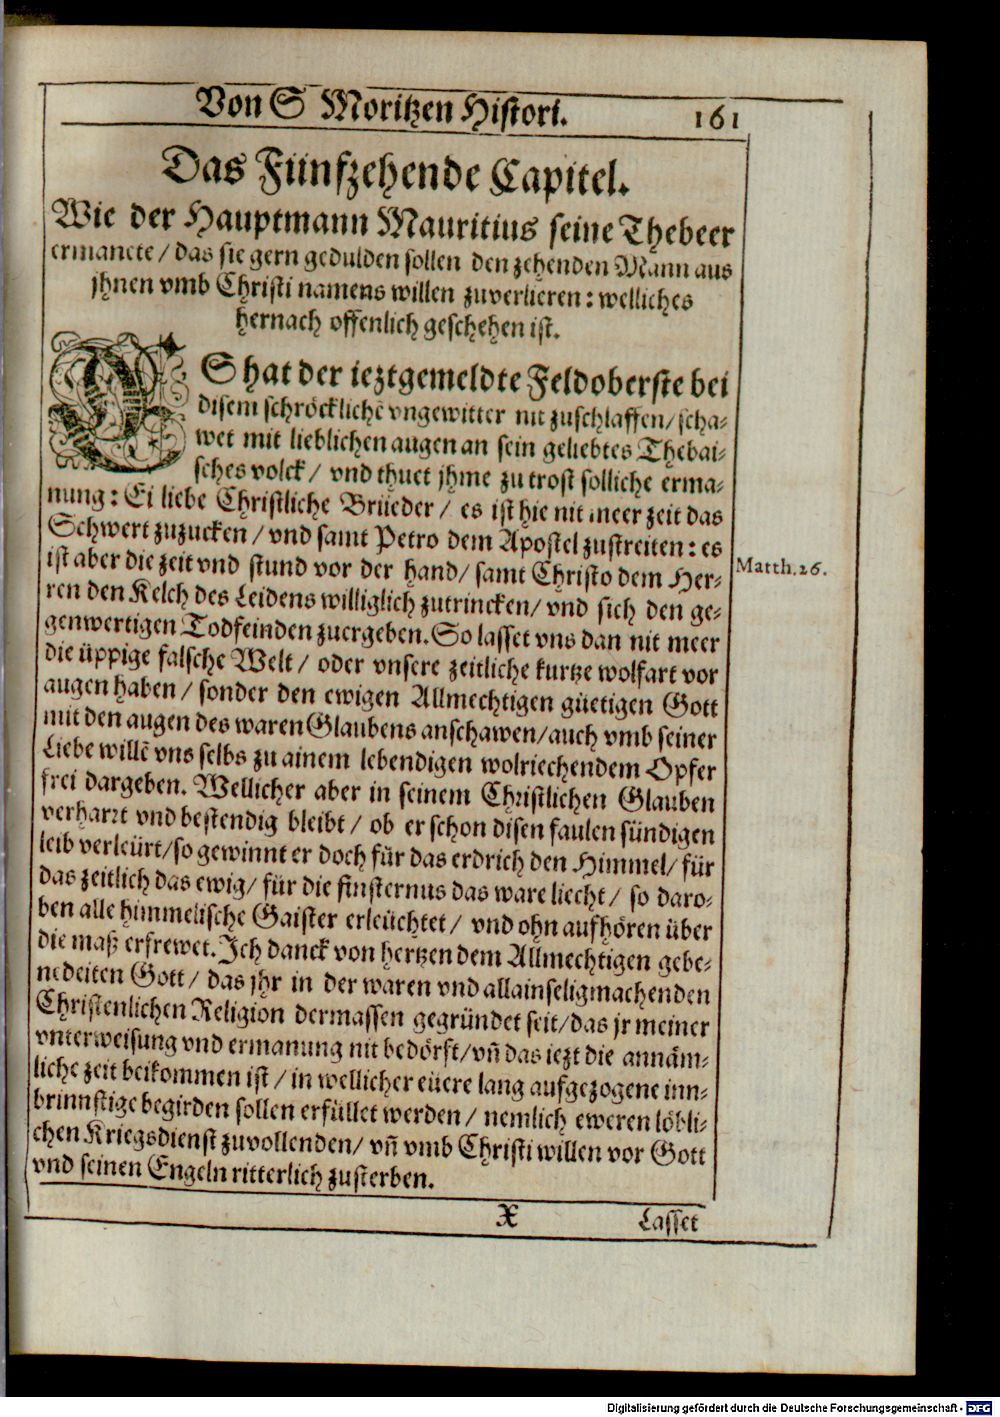 Von S Moritzen Histori. 161
Das Fünfzehende Capitel.
Wie der Hauptmann Mauritius seine Thebeer
ermanete / das sie gern gedulden sollen den zehenden Mann aus
jhnen vmb Christi namens willen zuverlieren: welliches
hernach offenlich geschehen ist.
ES hat der ieztgemeldte Feldoberste bei
disem schröcklichẽ vngewitter nit zuschlaffen / scha-
wet mit lieblichen augen an sein geliebtes Thebai-
sches volck / vnd thuet jhme zu trost solliche erma-
nung: Ei liebe Christliche Brüeder / es ist hie nit meer zeit das
Schwert zuzucken / vnd samt Petro dem Apostel zustreiten: es
ist aber die zeit vnd stund vor der hand / samt Christo dem Her-
ren den Kelch des Leidens williglich zutrincken / vnd sich den ge-
genwertigen Todfeinden zuergeben. So lasset vns dan nit meer
die üppige falsche Welt / oder vnsere zeitliche kurtze wolfart vor
augen haben / sonder den ewigen Allmechtigen güetigen Gott
mit den augen des waren Glaubens anschawen / auch vmb seiner
Liebe willẽ vns selbs zu ainem lebendigen wolriechendem Opfer
frei dargeben. Wellicher aber in seinem Christlichen Glauben
verharrt vnd bestendig bleibt / ob er schon disen faulen sündigen
leib verleürt / so gewinnt er doch für das erdrich den Himmel / für
das zeitlich das ewig / für die finsternus das ware liecht / so daro-
ben alle himmelische Gaister erleüchtet / vnd ohn aufhören über
die maß erfrewet. Ich danck von hertzen dem Allmechtigen gebe-
nedeiten Gott / das jhr in der waren vnd allainseligmachenden
Christenlichen Religion dermassen gegründet seit / das jr meiner
vnterweisung vnd ermanung nit bedörft / vñ das iezt die annäm-
liche zeit beikommen ist / in wellicher eüere lang aufgezogene inn-
brinnstige begirden sollen erfüllet werden / nemlich eweren löbli-
chen Kriegsdienst zuvollenden / vñ vmb Christi willen vor Gott
vnd seinen Engeln ritterlich zusterben.
Matth. 26.
X Lasset
Digitalisierung gefördert durch die Deutsche Forschungsgemeinschaft - DFG